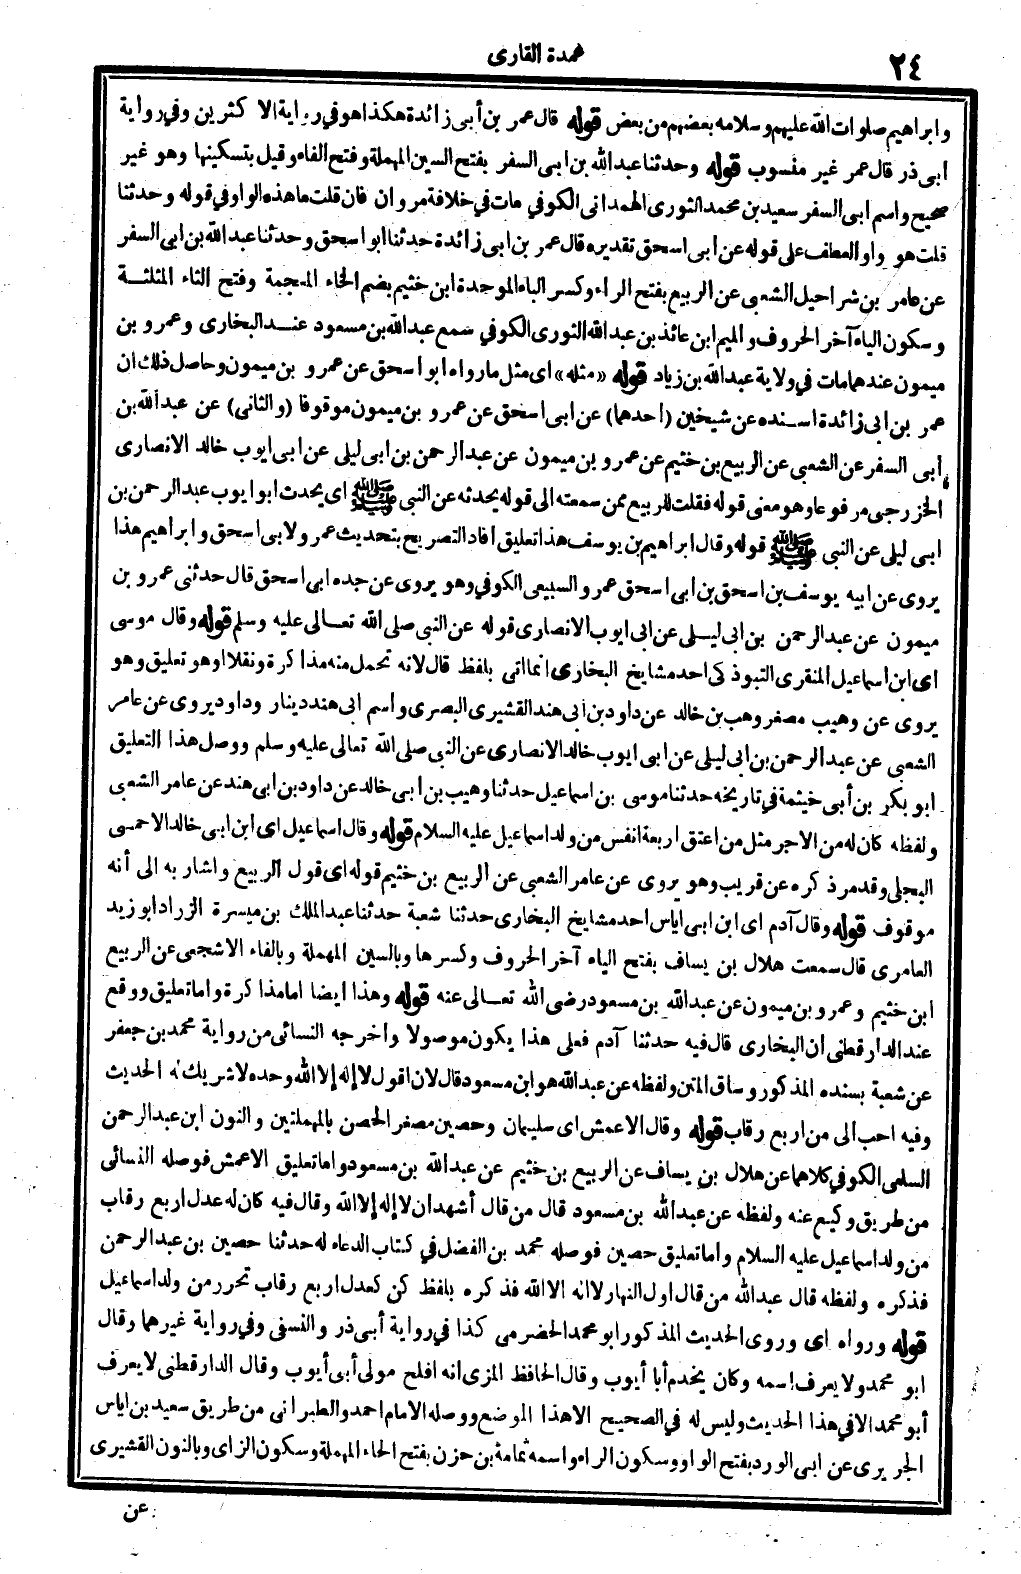 ٢٤
عمدة القارى
وابراهيم صلوات الله عليهم وسلامه بعضهم من بعض قوله قال عمر بن أبى زائدة هكذا هو فى رواية الا كثرين وفى رواية
ابى ذر قال عمر غير منسوب قوله وحدثنا عبد الله بن ابى السفر بفتح السين المهملة وفتح الفاء وقيل بتسكينها وهو غير
صحيح واسم ابى السفر سعيد بن محمد الثورى الهمدانى الكوفي مات في خلافة مروان فان قلت ما هذه الواو في قوله وحدثنا
قلت هو واو العطف على قوله عن ابى اسحق تقديره قال عمر بن ابى زائدة حدثنا ابو اسحق وحدثنا عبد الله بن ابى السفر
عن عامر بن شراحيل الشعبى عن الربيع بفتح الراء وكسر الباء الموحدة ابن خثيم بضم الخاء المعجمة وفتح الثاء المثلثة
وسكون الياء آخر الحروف والميم ابن عائذ بن عبد الله الثورى الكوفي سمع عبد الله بن مسعود عند البخارى وعمرو بن
ميمون عندهما مات في ولاية عبد الله بن زياد قوله «مثله» اى مثل ما رواه ابو اسحق عن عمرو بن ميمون وحاصل ذلك ان
عمر بن ابى زائدة اسنده عن شيخين (احدهما) عن ابى اسحق عن عمرو بن ميمون موقوفا (والثانى) عن عبد الله بن
أبى السفر عن الشعبى عن الربيع بن خثيم عن عمرو بن ميمون عن عبد الرحمن بن ابى ليلى عن ابى ايوب خالد الانصارى
الخزرجى مرفوعا وهو معنى قوله فقلت للربيع ممن سمعته الى قوله يحدثه عن النبى ﷺ اى يحدث ابو ايوب عبد الرحمن بن
ابى ليلى عن النبى ﷺ قوله وقال ابراهيم بن يوسف هذا تعليق افاد التصريح بتحديث عمرو لابى اسحق وابراهيم هذا
يروى عن ابيه يوسف بن اسحق بن ابى اسحق عمرو السبيعى الكوفي وهو يروى عن جده ابى اسحق قال حدثنى عمرو بن
ميمون عن عبد الرحمن بن ابى ليلى عن ابى ايوب الانصارى قوله عن النبى صلى الله تعالى عليه وسلم قوله وقال موسى
اى ابن اسماعيل المنقرى التبوذكى احد مشايخ البخارى انما اتى بلفظ قال لانه تحمل منه مذاكرة ونقلا او هو تعليق وهو
يروى عن وهيب مصغر وهب بن خالد عن داود بن أبى هند القشيرى البصرى واسم ابى هند دينار وداود يروى عن عامر
الشعبى عن عبد الرحمن بن ابى ليلى عن ابى ايوب خالد الانصارى عن النبى صلى الله تعالى عليه وسلم ووصل هذا التعليق
ابو بكر بن أبى خيثمة في تاريخه حدثنا موسى بن اسماعيل حدثنا وهيب بن ابى خالد عن داود بن ابى هند عن عامر الشعبى
ولفظه كان له من الاجر مثل من اعتق اربعة انفس من ولد اسماعيل عليه السلام قوله وقال اسماعيل اى ابن ابى خالد الاحمسى
البجلى وقد مر ذكره عن قريب وهو يروى عن عامر الشعبى عن الربيع بن خثيم قوله اى قول الربيع واشار به الى أنه
موقوف قوله وقال آدم اى ابن ابى اياس احد مشايخ البخارى حدثنا شعبة حدثنا عبد الملك بن ميسرة الزراد ابو زيد
العامرى قال سمعت هلال بن يساف بفتح الياء آخر الحروف وكسرها وبالسين المهملة وبالفاء الاشجعى عن الربيع
ابن خثيم وعمرو بن ميمون عن عبد الله بن مسعود رضى الله تعالى عنه قوله وهذا ايضا اما مذاكرة واما تعليق ووقع
عند الدارقطنى ان البخارى قال فيه حدثنا آدم فعلى هذا يكون موصولا واخرجه النسائى من رواية محمد بن جعفر
عن شعبة بسنده المذكور وساق المتن ولفظه عن عبد الله هو ابن مسعود قال لان اقول لا إله إلا الله وحده لا شريك له الحديث
وفيه احب الى من اربع رقاب قوله وقال الاعمش اى سليمان وحصين مصغر الحصن بالمهملتين والنون ابن عبد الرحمن
السلمى الكوفي كلاهما عن هلال بن يساف عن الربيع بن خثيم عن عبد الله بن مسعود واما تعليق الاعمش فوصله النسائى
من طريق وكيع عنه ولفظه عن عبد الله بن مسعود قال من قال أشهد ان لا إله إلا الله وقال فيه كان له عدل اربع رقاب
من ولد اسماعيل عليه السلام واما تعليق حصين فوصله محمد بن الفضل في كتاب الدعاء له حدثنا حصين بن عبد الرحمن
فذكره ولفظه قال عبد الله من قال اول النهار لا اله الا الله فذكره بلفظ كن كعدل اربع رقاب تحرر من ولد اسماعيل
قوله ورواه اى وروى الحديث المذكور ابو محمد الحضرمى كذا في رواية أبى ذر والنسفى وفي رواية غيرهما وقال
ابو محمد ولا يعرف اسمه وكان يخدم أبا أيوب وقال الحافظ المزى انه افلح مولى أبى أيوب وقال الدارقطنى لا يعرف
أبو محمد الا في هذا الحديث وليس له في الصحيح الا هذا الموضع ووصله الامام احمد والطبرانى من طريق سعيد بن اياس
الجريرى عن ابى الورد بفتح الواو وسكون الراء واسمه ثمامة بن حزن بفتح الحاء المهملة وسكون الزاى وبالنون القشيرى
عن